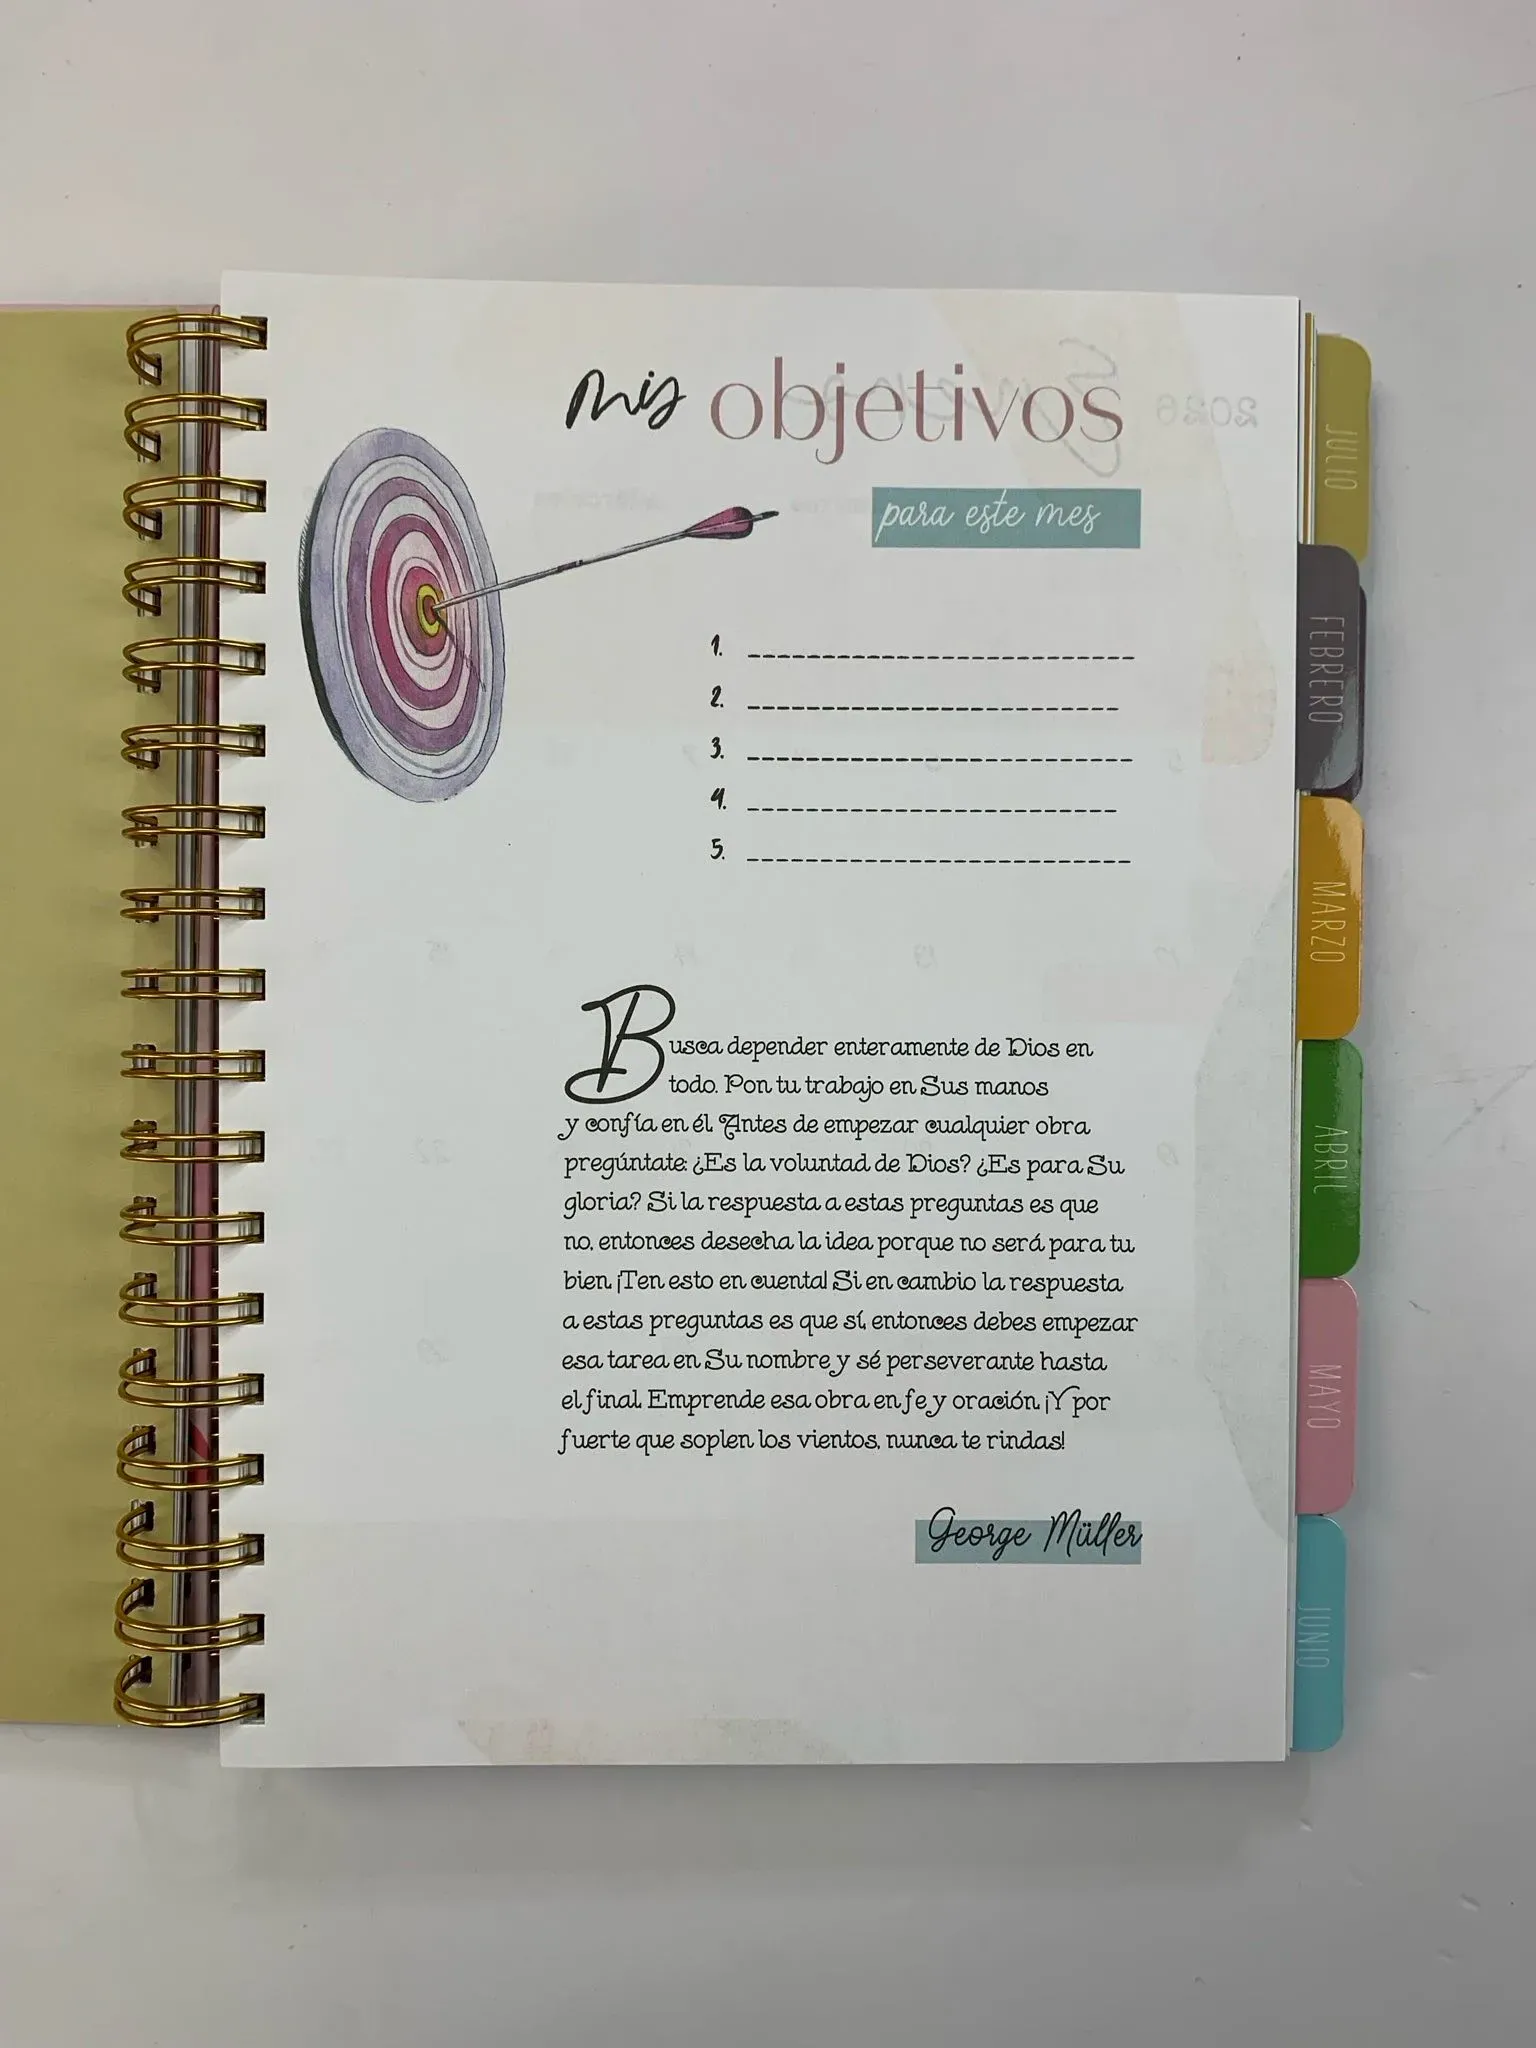 mis objetivos
para este mes
1.
2.
3.
4.
5.
Busca depender enteramente de Dios en
todo. Pon tu trabajo en Sus manos
y confía en él. Antes de empezar cualquier obra
pregúntate: ¿Es la voluntad de Dios? ¿Es para Su
gloria? Si la respuesta a estas preguntas es que
no, entonces desecha la idea porque no será para tu
bien. ¡Ten esto en cuenta! Si en cambio la respuesta
a estas preguntas es que sí, entonces debes empezar
esa tarea en Su nombre y sé perseverante hasta
el final. Emprende esa obra en fe y oración. ¡Y por
fuerte que soplen los vientos, nunca te rindas!
George Müller
JULIO
FEBRERO
MARZO
ABRIL
MAYO
JUNIO
2026